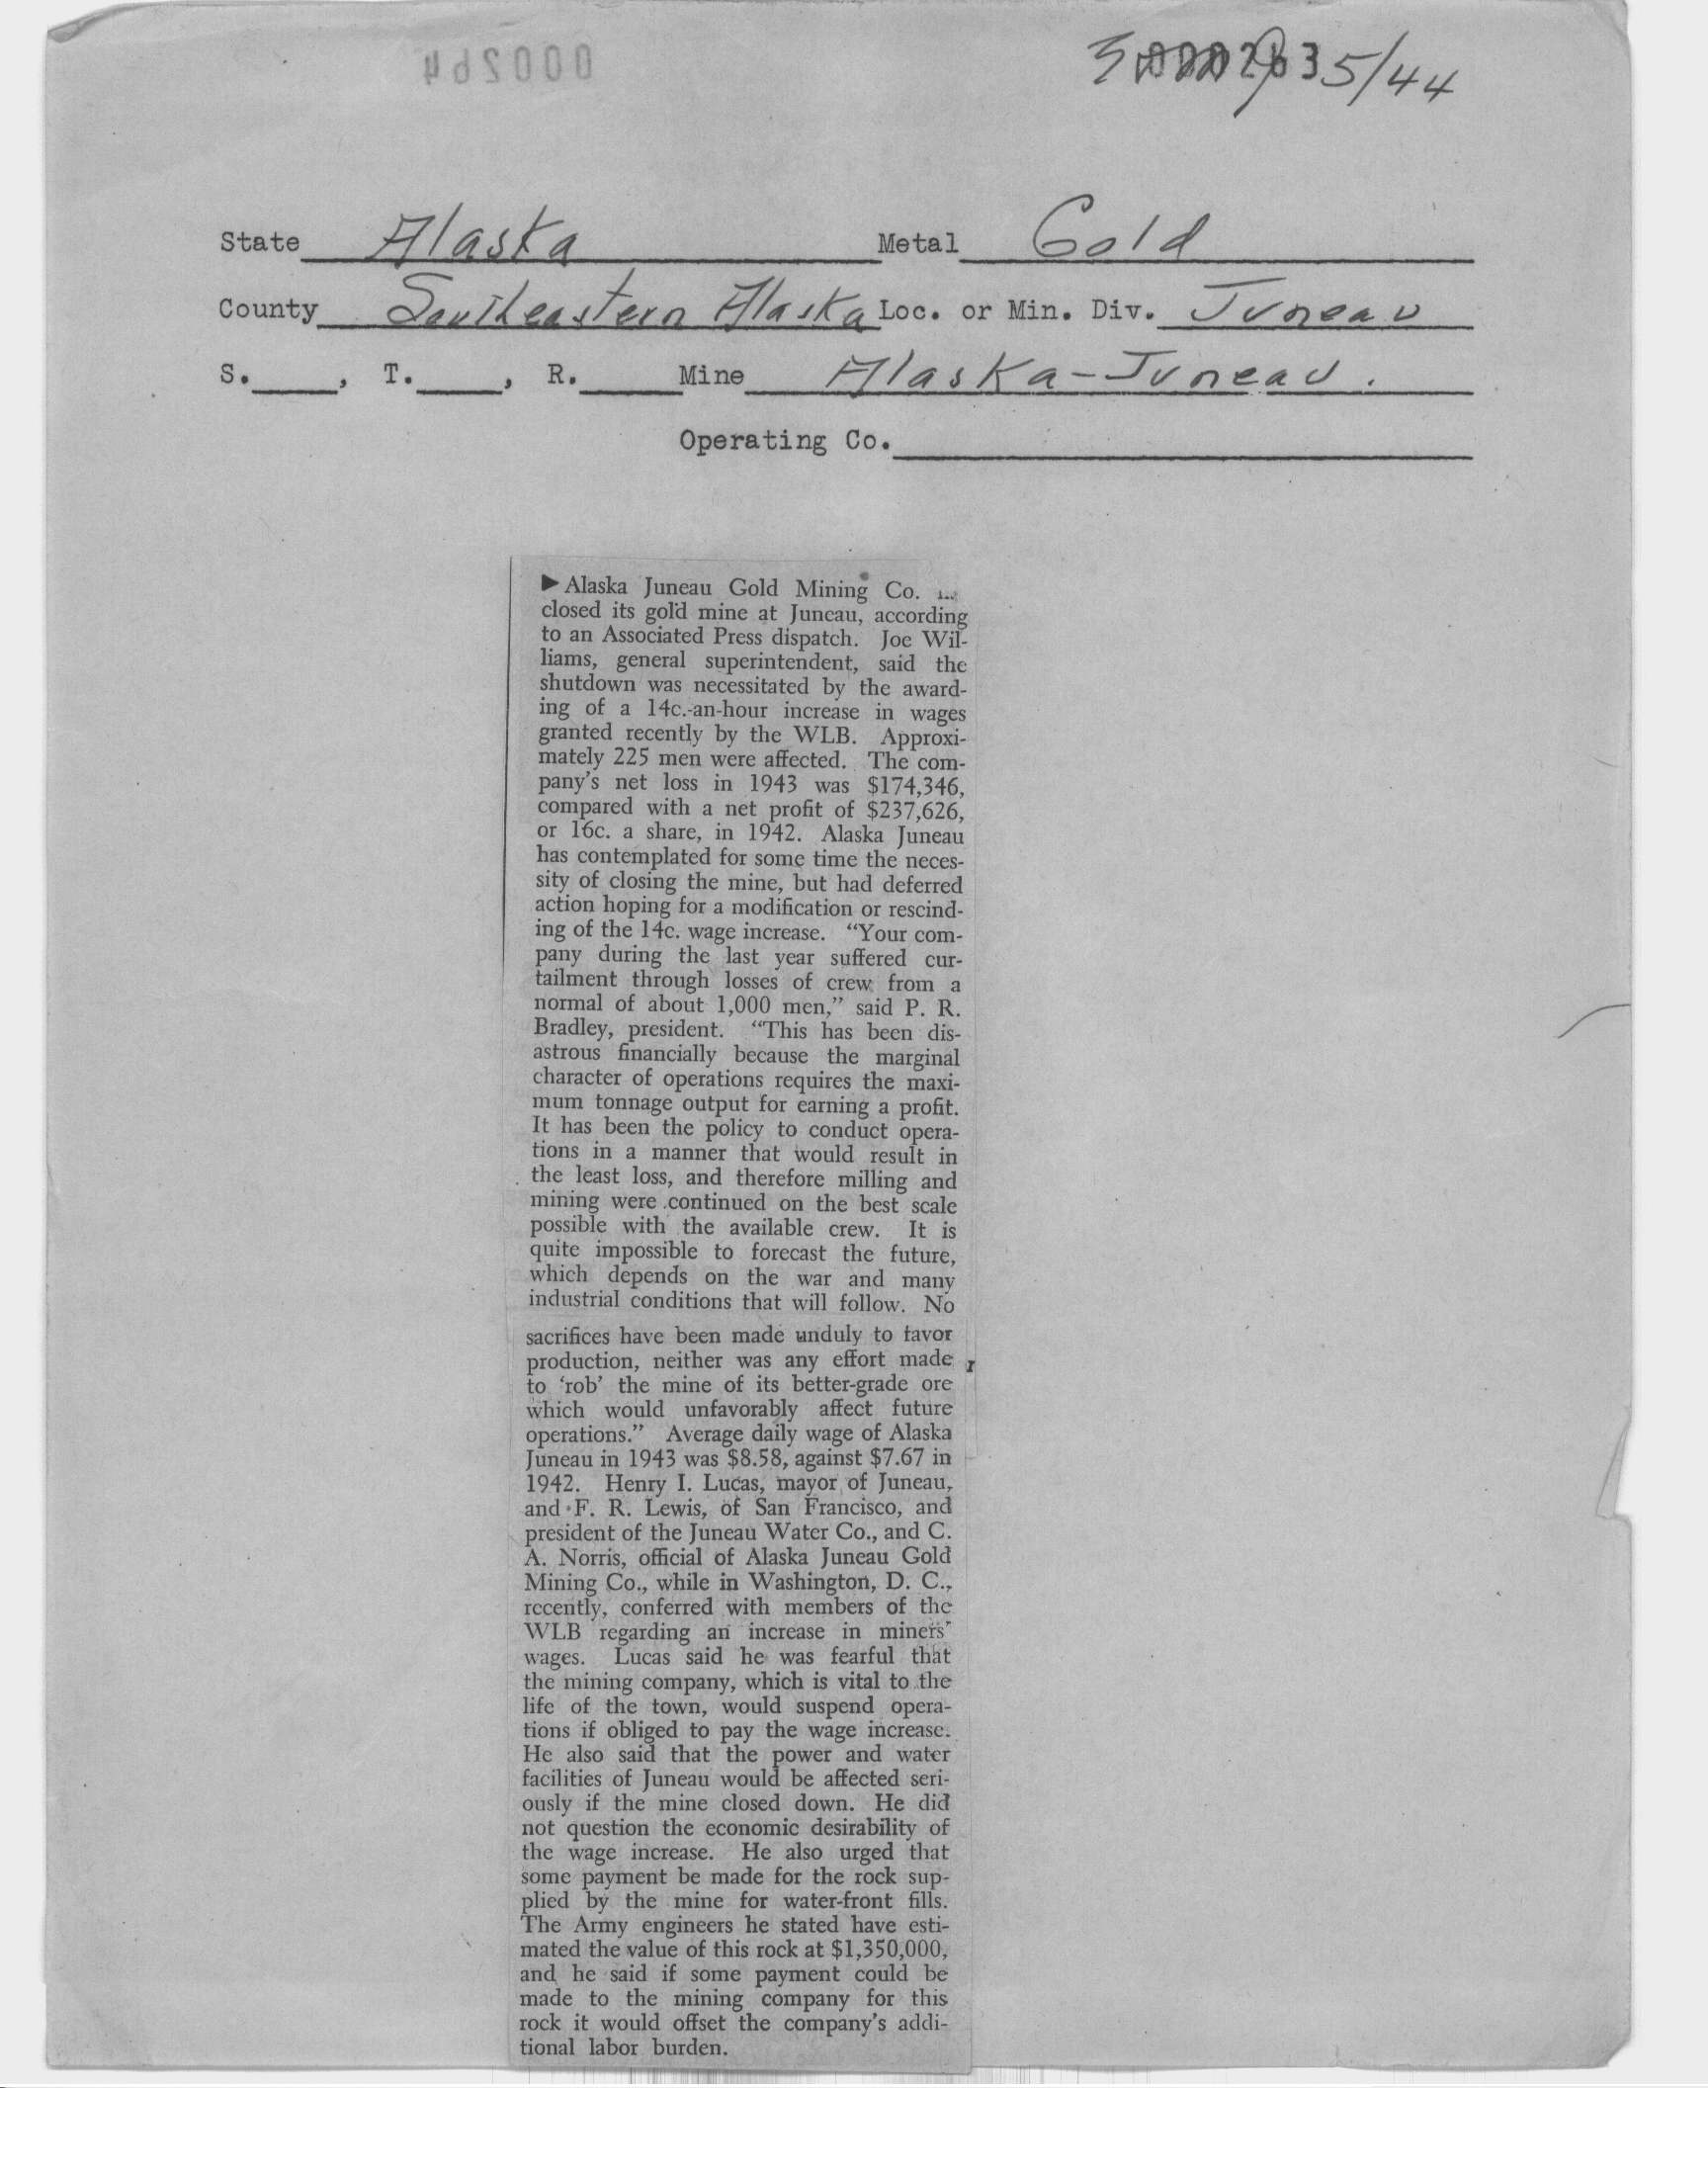 000264
000263 5/44
State Alaska Metal Gold
County Southeastern Alaska Loc. or Min. Div. Juneau
S.____, T.____, R.____ Mine Alaska-Juneau.
Operating Co.
▶Alaska Juneau Gold Mining Co.
closed its gold mine at Juneau, according
to an Associated Press dispatch. Joe Wil-
liams, general superintendent, said the
shutdown was necessitated by the award-
ing of a 14c.-an-hour increase in wages
granted recently by the WLB. Approxi-
mately 225 men were affected. The com-
pany's net loss in 1943 was $174,346,
compared with a net profit of $237,626,
or 16c. a share, in 1942. Alaska Juneau
has contemplated for some time the neces-
sity of closing the mine, but had deferred
action hoping for a modification or rescind-
ing of the 14c. wage increase. “Your com-
pany during the last year suffered cur-
tailment through losses of crew from a
normal of about 1,000 men,” said P. R.
Bradley, president. “This has been dis-
astrous financially because the marginal
character of operations requires the maxi-
mum tonnage output for earning a profit.
It has been the policy to conduct opera-
tions in a manner that would result in
the least loss, and therefore milling and
mining were continued on the best scale
possible with the available crew. It is
quite impossible to forecast the future,
which depends on the war and many
industrial conditions that will follow. No
sacrifices have been made unduly to favor
production, neither was any effort made
to ‘rob’ the mine of its better-grade ore
which would unfavorably affect future
operations.” Average daily wage of Alaska
Juneau in 1943 was $8.58, against $7.67 in
1942. Henry I. Lucas, mayor of Juneau,
and F. R. Lewis, of San Francisco, and
president of the Juneau Water Co., and C.
A. Norris, official of Alaska Juneau Gold
Mining Co., while in Washington, D. C.,
recently, conferred with members of the
WLB regarding an increase in miners'
wages. Lucas said he was fearful that
the mining company, which is vital to the
life of the town, would suspend opera-
tions if obliged to pay the wage increase.
He also said that the power and water
facilities of Juneau would be affected seri-
ously if the mine closed down. He did
not question the economic desirability of
the wage increase. He also urged that
some payment be made for the rock sup-
plied by the mine for water-front fills.
The Army engineers he stated have esti-
mated the value of this rock at $1,350,000,
and he said if some payment could be
made to the mining company for this
rock it would offset the company's addi-
tional labor burden.